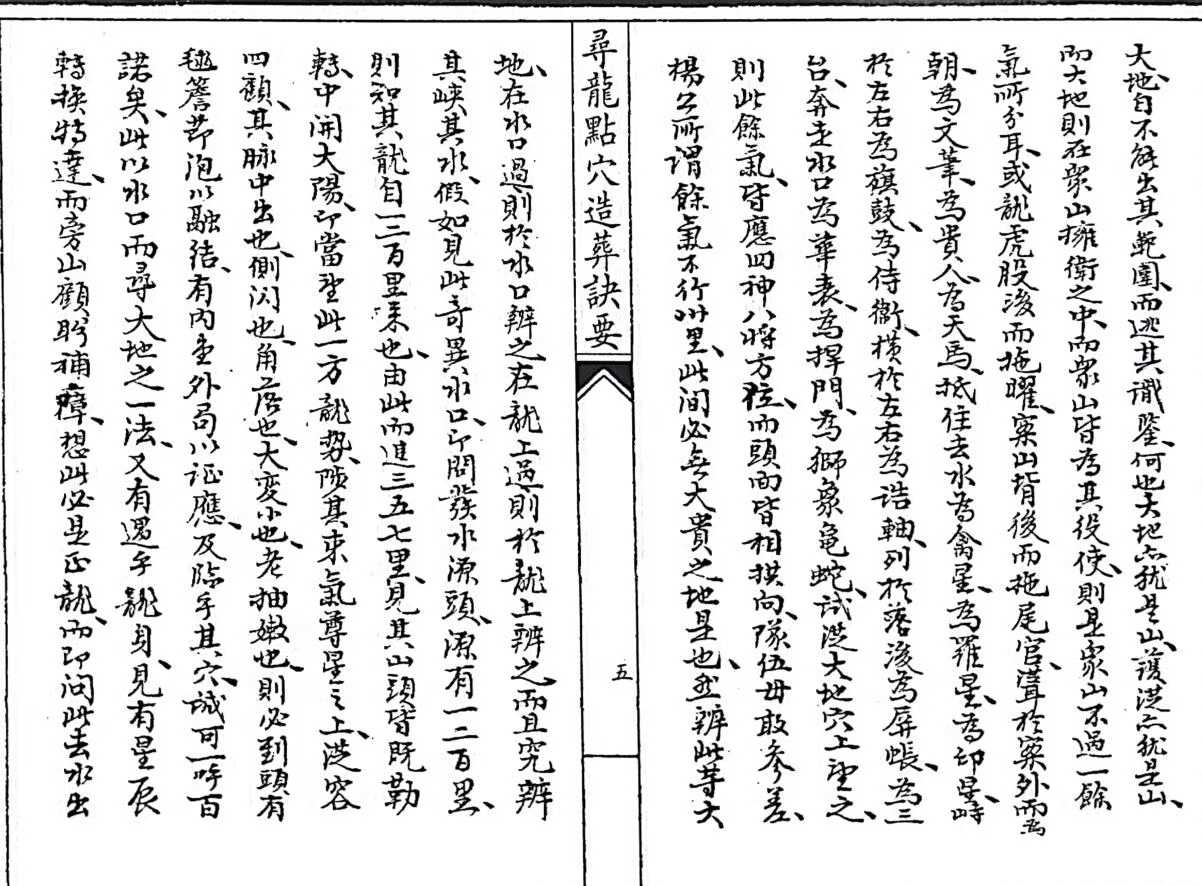 大地、自不能出其範圍、而逃其識鑒、何也大地亦猶是山、護從亦猶是山、
而大地則在眾山擁衛之中、而眾山皆為其役使、則是眾山不過一餘
氣所分耳、或龍虎股後而拖曜、案山背後而拖尾官、聳於案外而為
朝、為文筆、為貴人、為天馬、抵住去水為禽星、為羅星、為印星、峙
於左右為旗鼓、為侍衛、橫於左右為誥軸、列於落後為屏帳、為三
台、奔走水口為華表、為捍門、為獅象龜蛇、試從大地穴上望之、
則此餘氣、皆應四神八將方位、而頭面皆相拱向、隊伍毋敢參差、
楊公所謂餘氣不行卅里、此間必無大貴之地是也、然辨此等大
尋龍點穴造葬訣要
五
地、在水口過、則於水口辨之、在龍上過、則於龍上辨之、而且究辨
其峽其水、假如見此奇異水口、即問發水源頭、源有一二百里、
則知其龍自一二百里來也、由此而進三五七里、見其山頭皆既勒
轉、中開大陽、即當望此一方龍勢、陟其束氣尊星之上、從容
四顧、其脉中出也、側閃也、角落也、大変小也、老抽嫩也、則必到頭有
毬簷節泡以融結、有內堂外局以証應、及臨乎其穴、誠可一呼百
諾矣、此以水口而尋大地之一法、又有遇乎龍身、見有星辰
轉換特達、而旁山顧盻補障、想此必是正龍、而即問此去水出